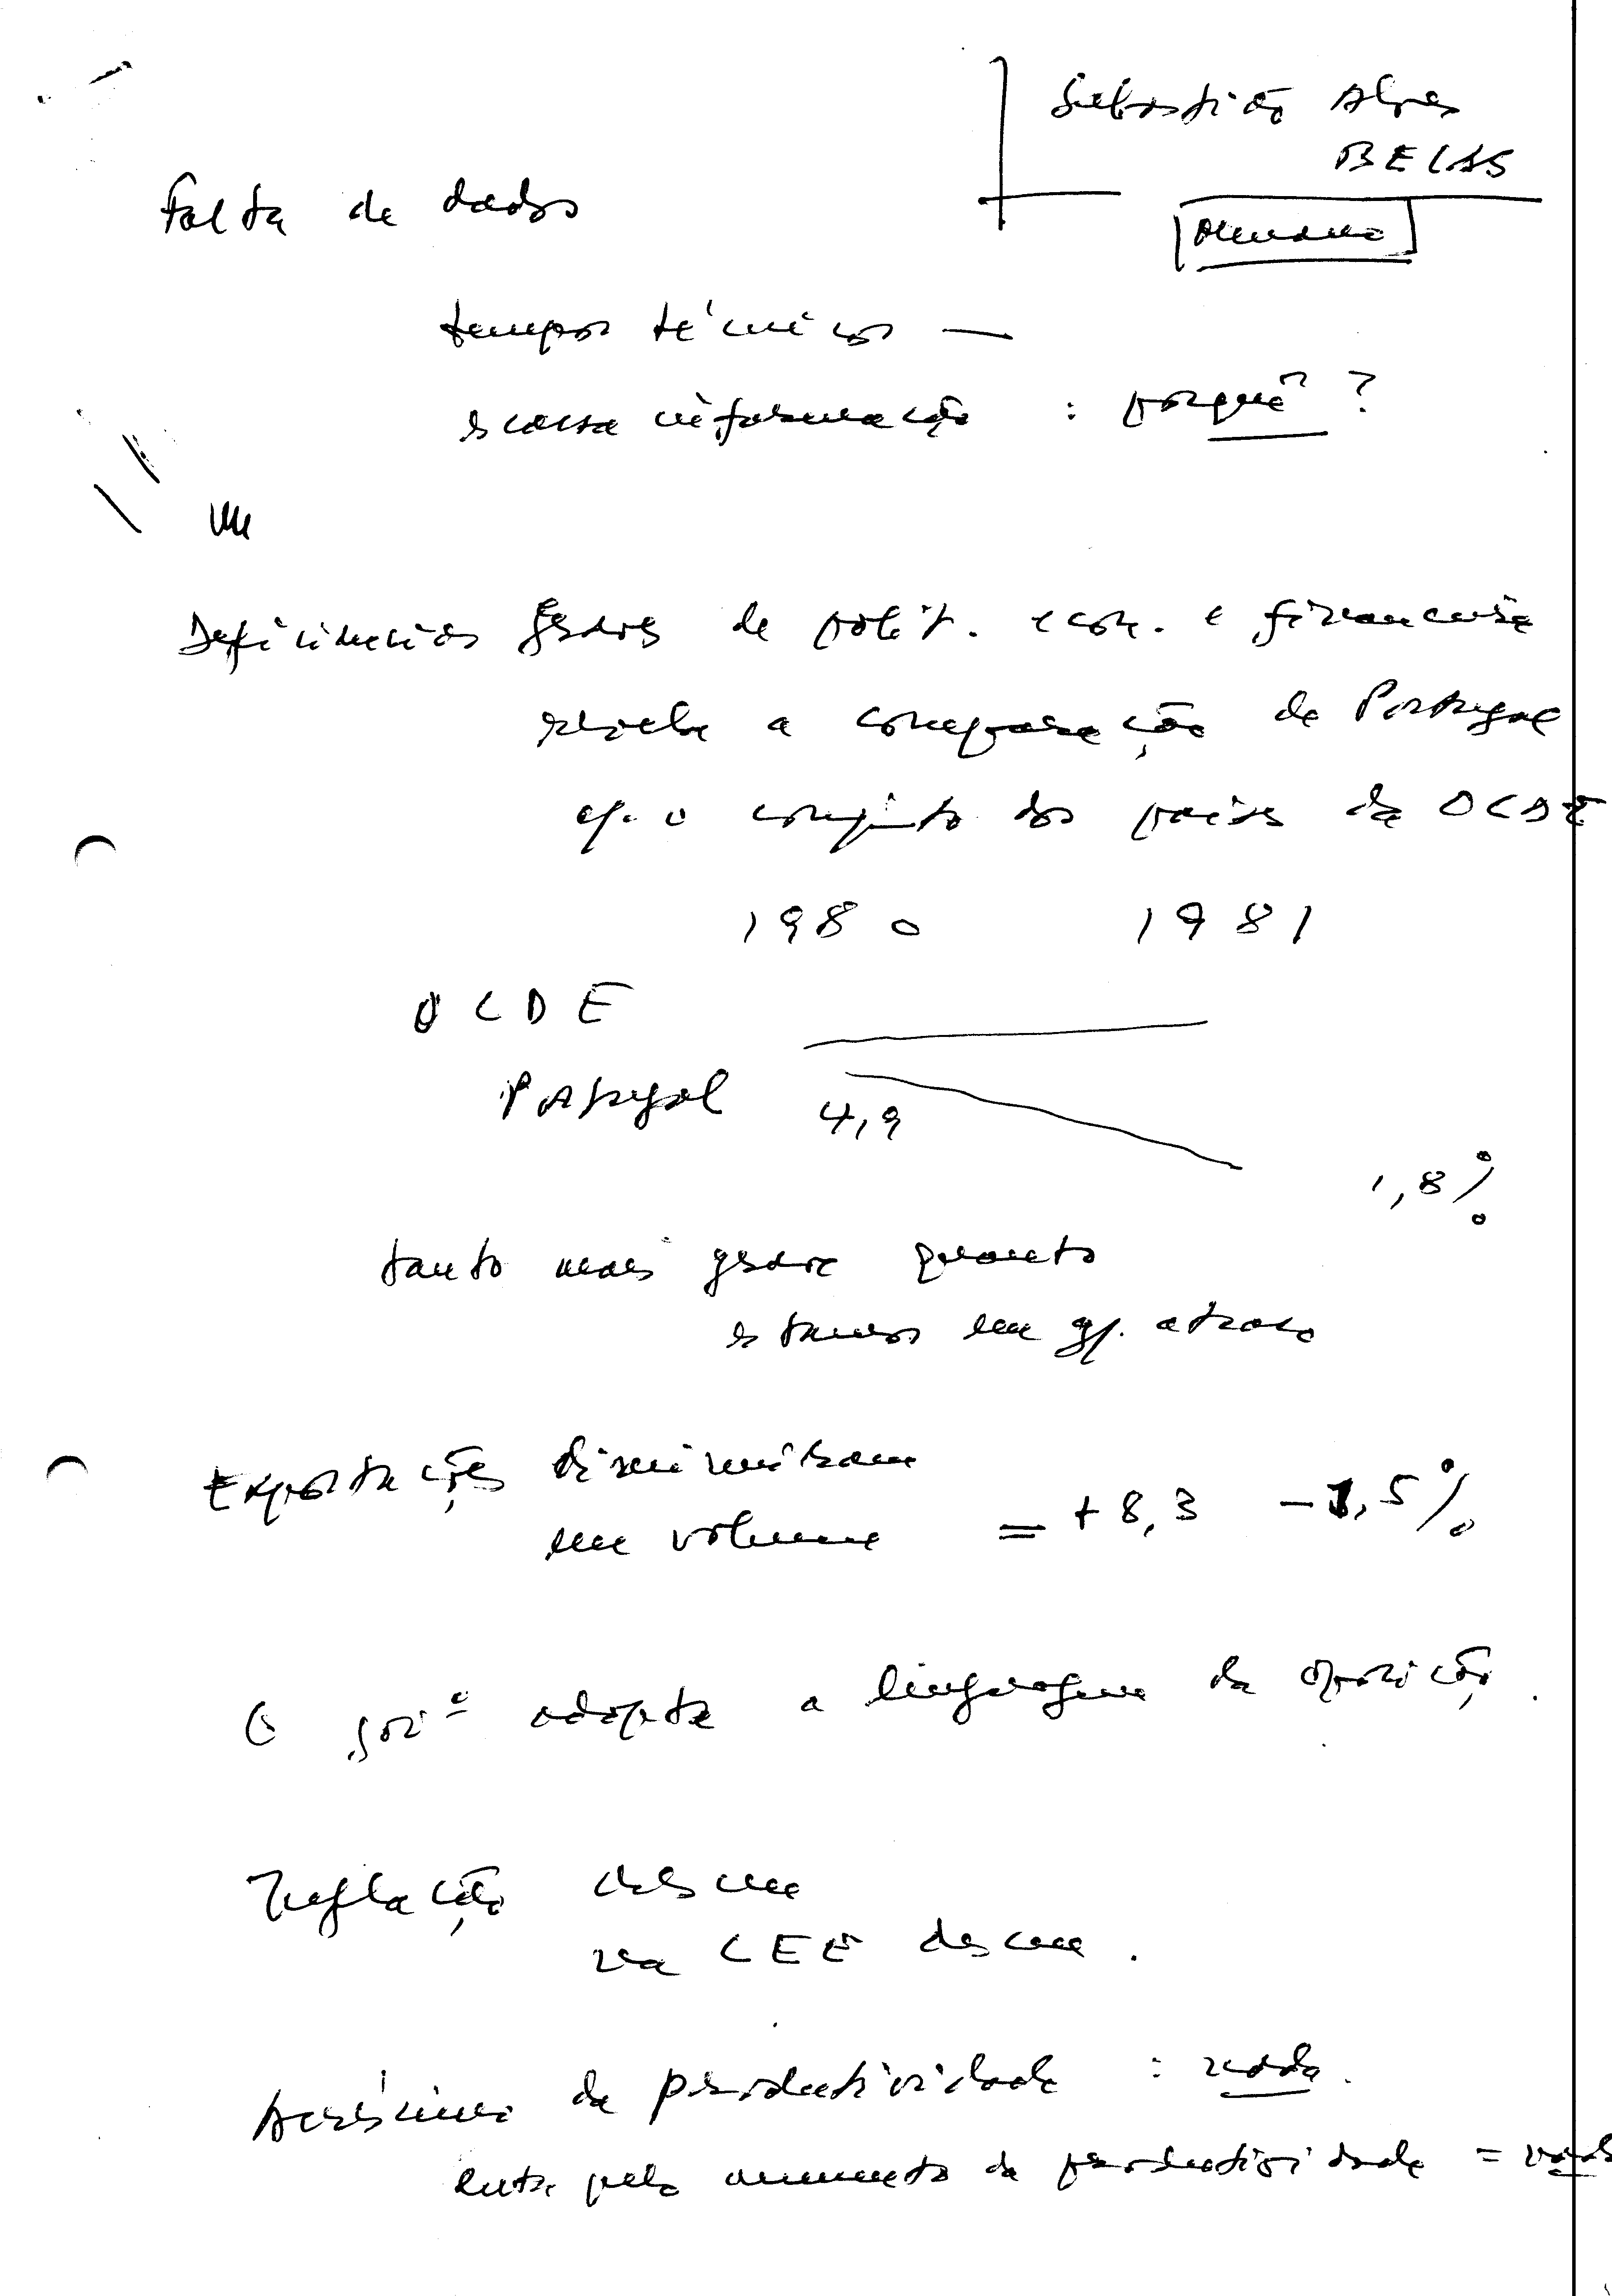 Sebastião Alves
BELAS
Falta de dados
tempos técnicos —
escassa informação : porquê ?
Deficiências graves de polít. econ. e financeira
revela a comparação de Portugal
c/. o conjunto dos países da OCDE
1980 1981
OCDE
Portugal 4,9
1,8%
tanto mais grave quanto
estamos em gr. atraso
Exportações diminuíram
em volume = +8,3 -1,5%
O govº adopta a linguagem da oposição.
Inflação desceu
na CEE desceu.
Acréscimo da productividade : nada.
luta pelo aumento da productividade = nada